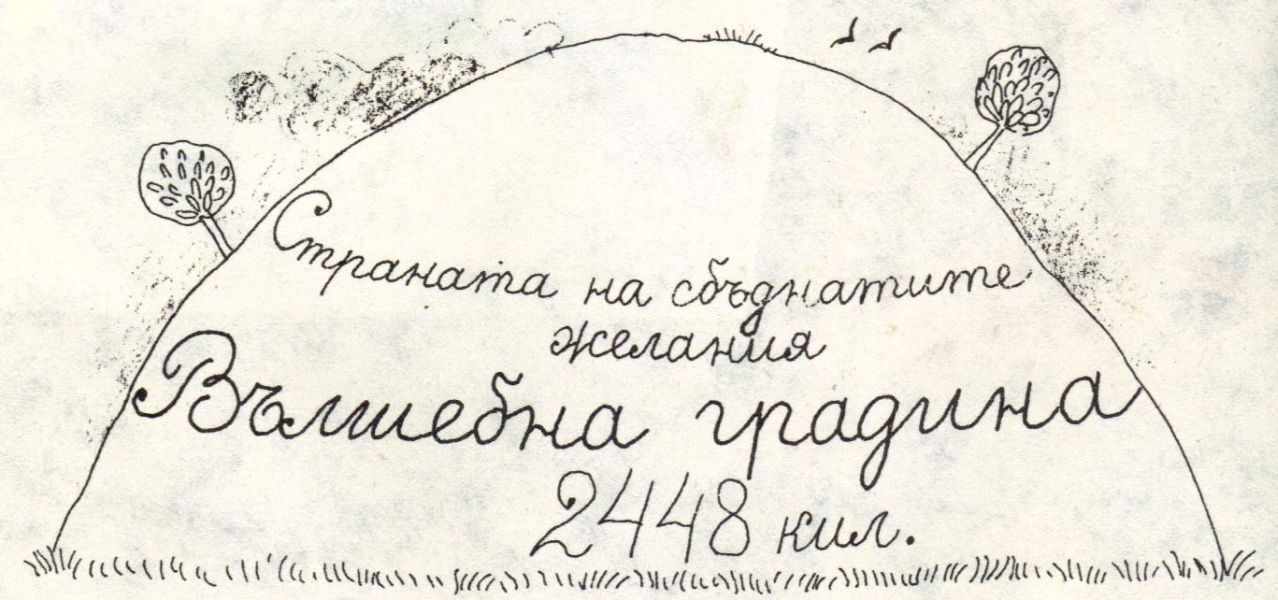 Страната на сбъднатите
желания
Вълшебна градина
2448 кил.